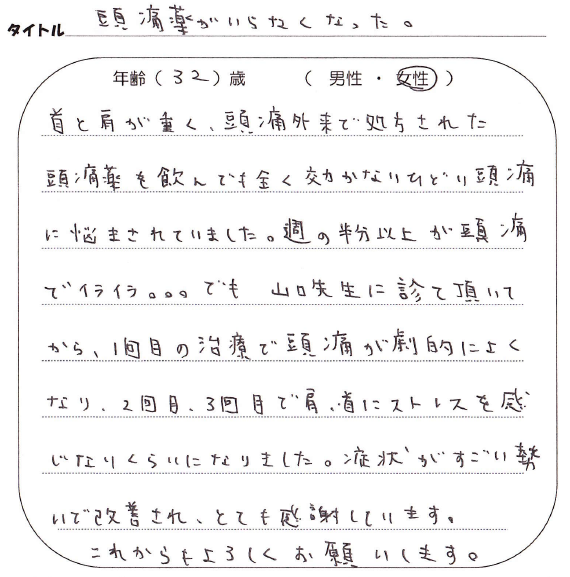 タイトル 頭痛薬がいらなくなった。
年齢(32)歳 (男性・女性)
首と肩が重く、頭痛外来で処方された
頭痛薬を飲んでも全く効かないひどい頭痛
に悩まされていました。週の半分以上が頭痛
でイライラ。。。でも 山口先生に診て頂いて
から、1回目の治療で頭痛が劇的によく
なり、2回目、3回目で肩、首にストレスを感
じないくらいになりました。症状がすごい勢
いで改善され、とても感謝しています。
これからもよろしくお願いします。